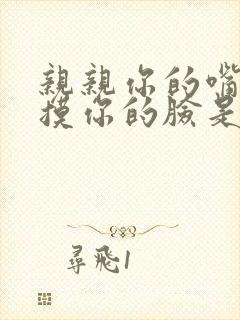 親親你的嘴
摸你的臉是
尋飛1